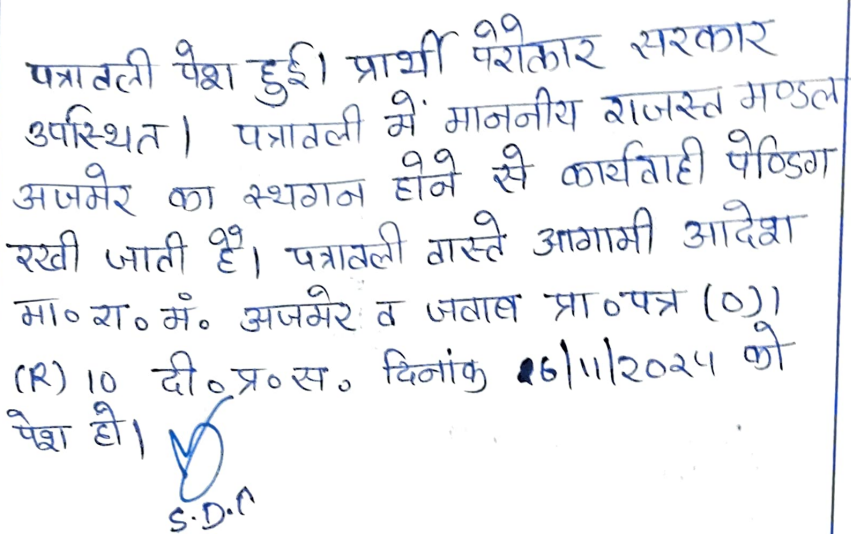 पत्रावली पेश हुई। प्रार्थी पेरोकार सरकार
उपस्थित। पत्रावली में माननीय राजस्व मण्डल
अजमेर का स्थगन होने से कार्यवाही पेण्डिग
रखी जाती है। पत्रावली वास्ते आगामी आदेश
मा० रा० मं० अजमेर व जवाब प्रा०पत्र (O)1
(R) 10 दी०प्र०स० दिनांक 26/11/2025 को
पेश हो।
S.D.O